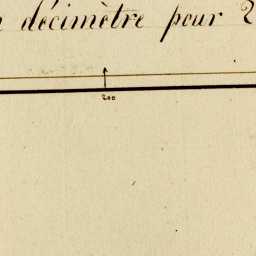 décimètre pour 2
200